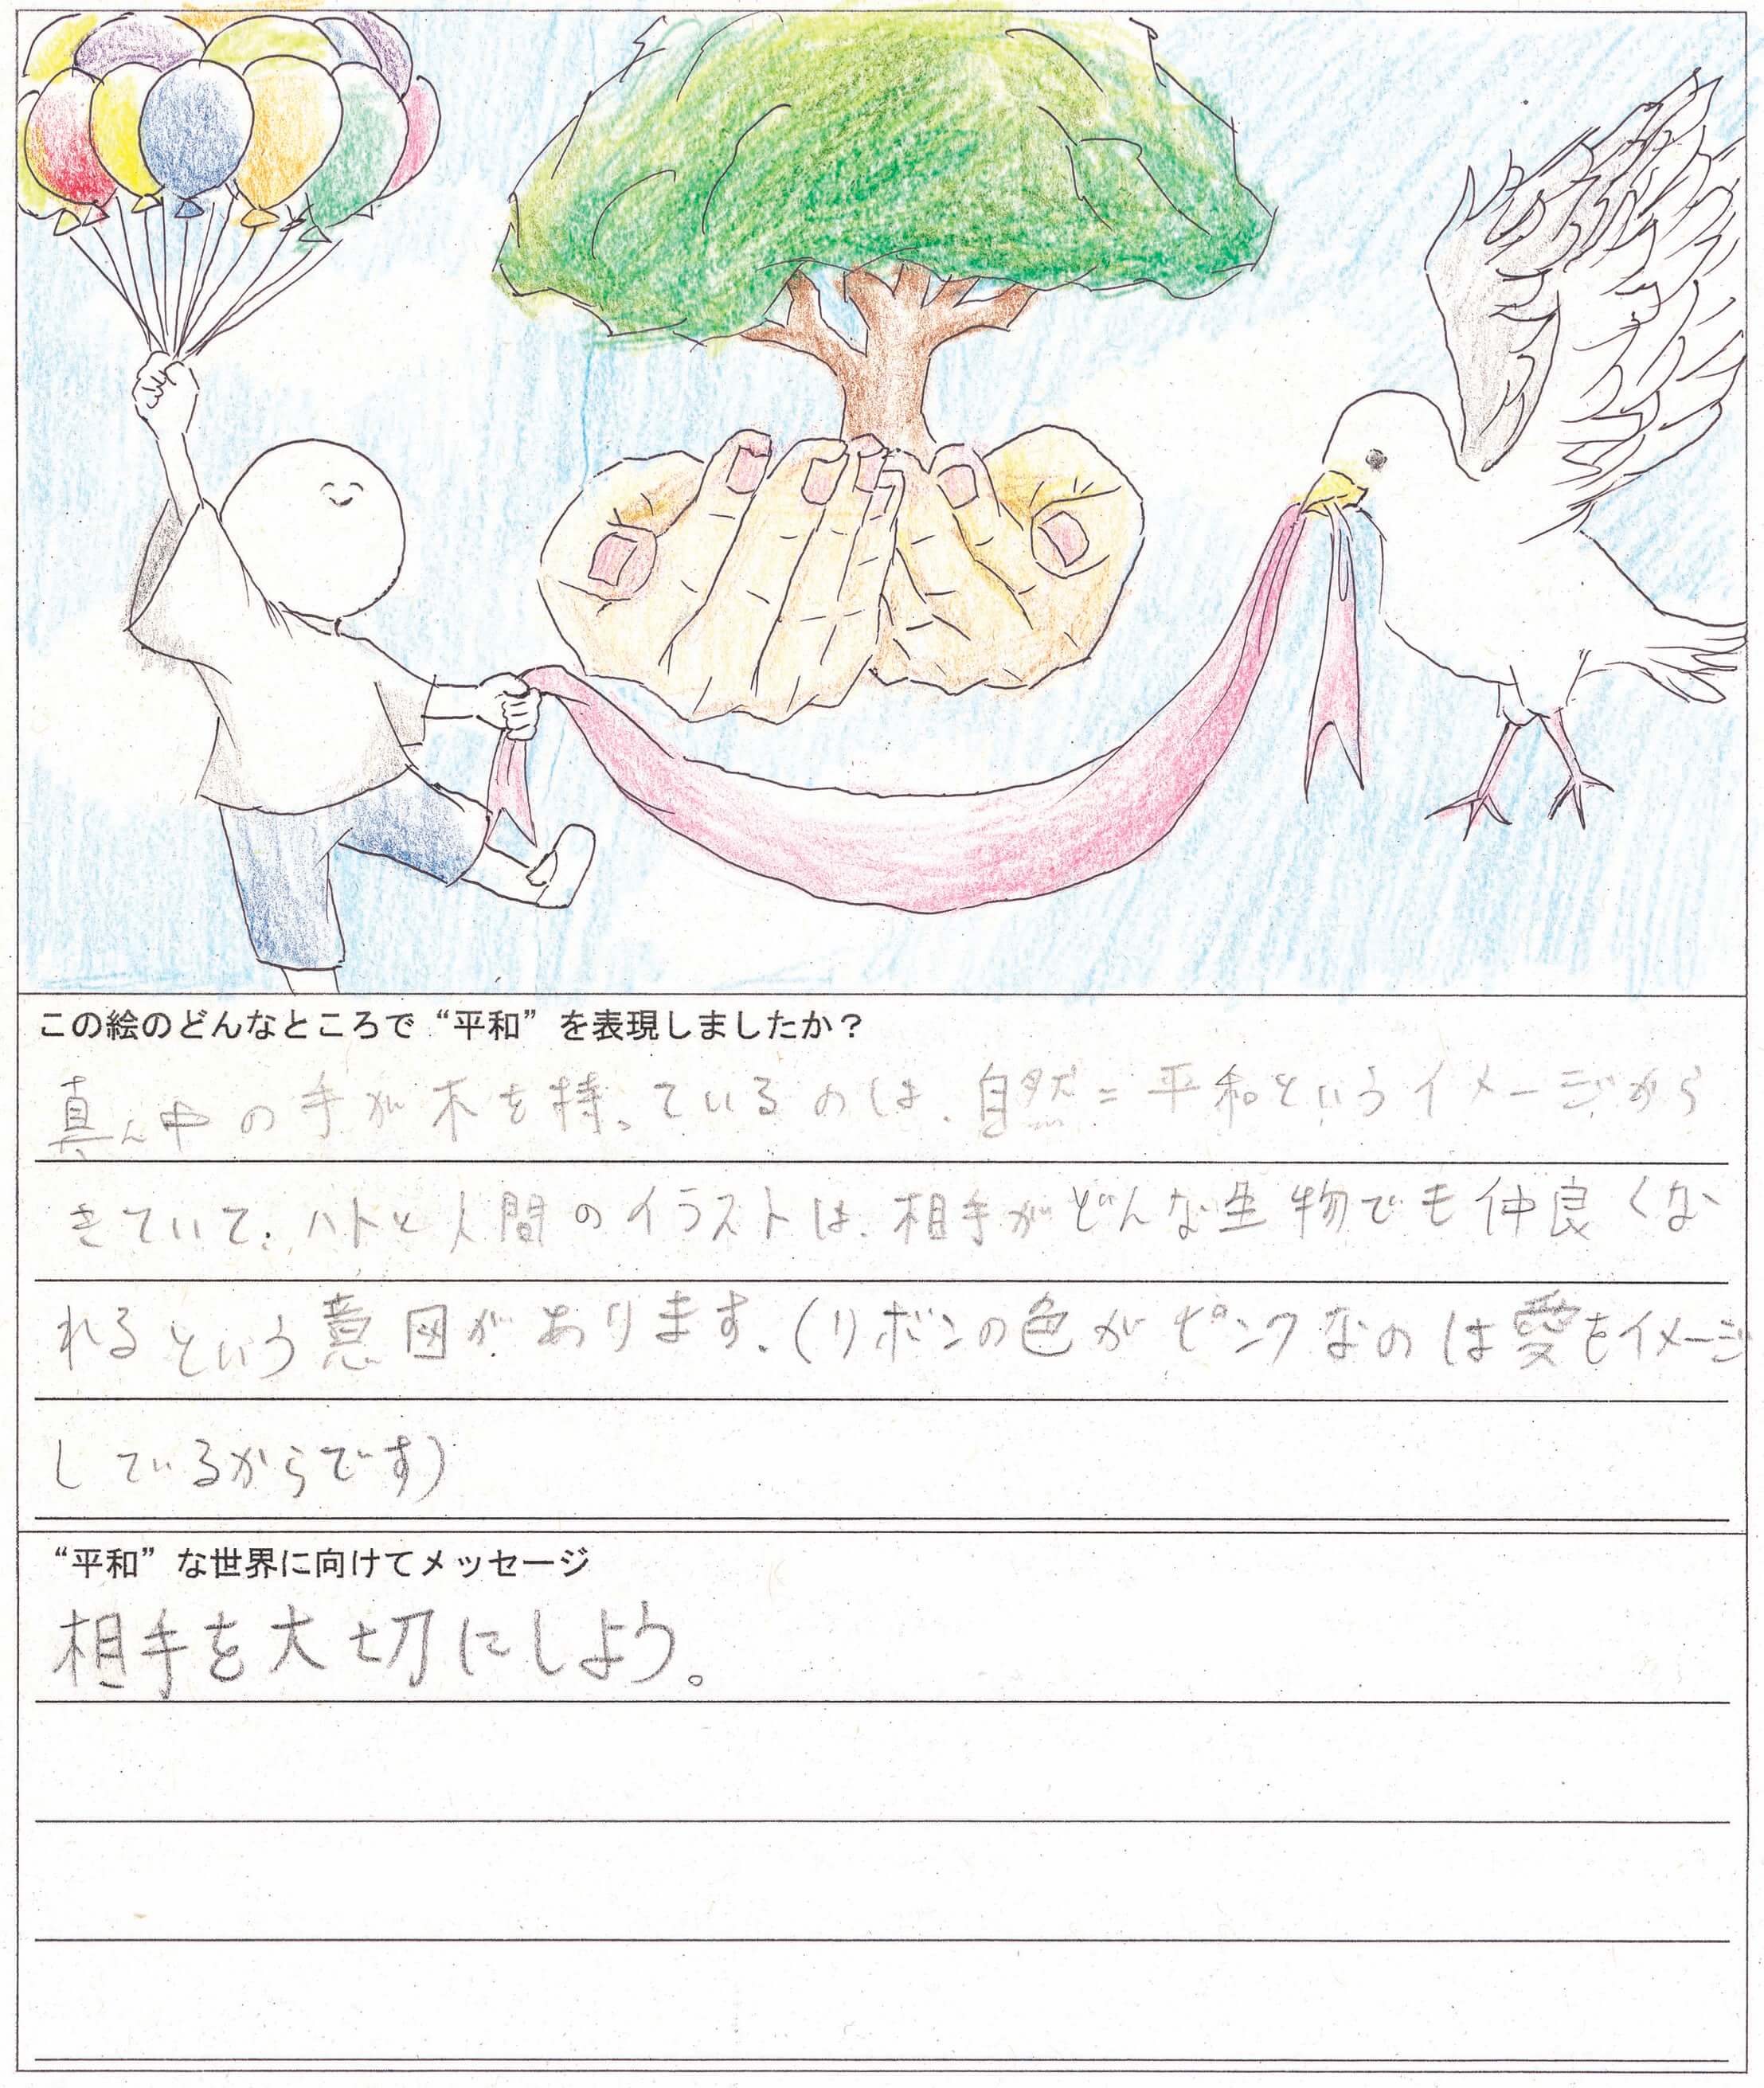 この絵のどんなところで“平和”を表現しましたか？
真ん中の手が木を持っているのは、自然=平和というイメージから
きていて、ハトと人間のイラストは、相手がどんな生物でも仲良くな
れるという意図があります。(リボンの色がピンクなのは愛をイメージ
しているからです)
“平和”な世界に向けてメッセージ
相手を大切にしよう。